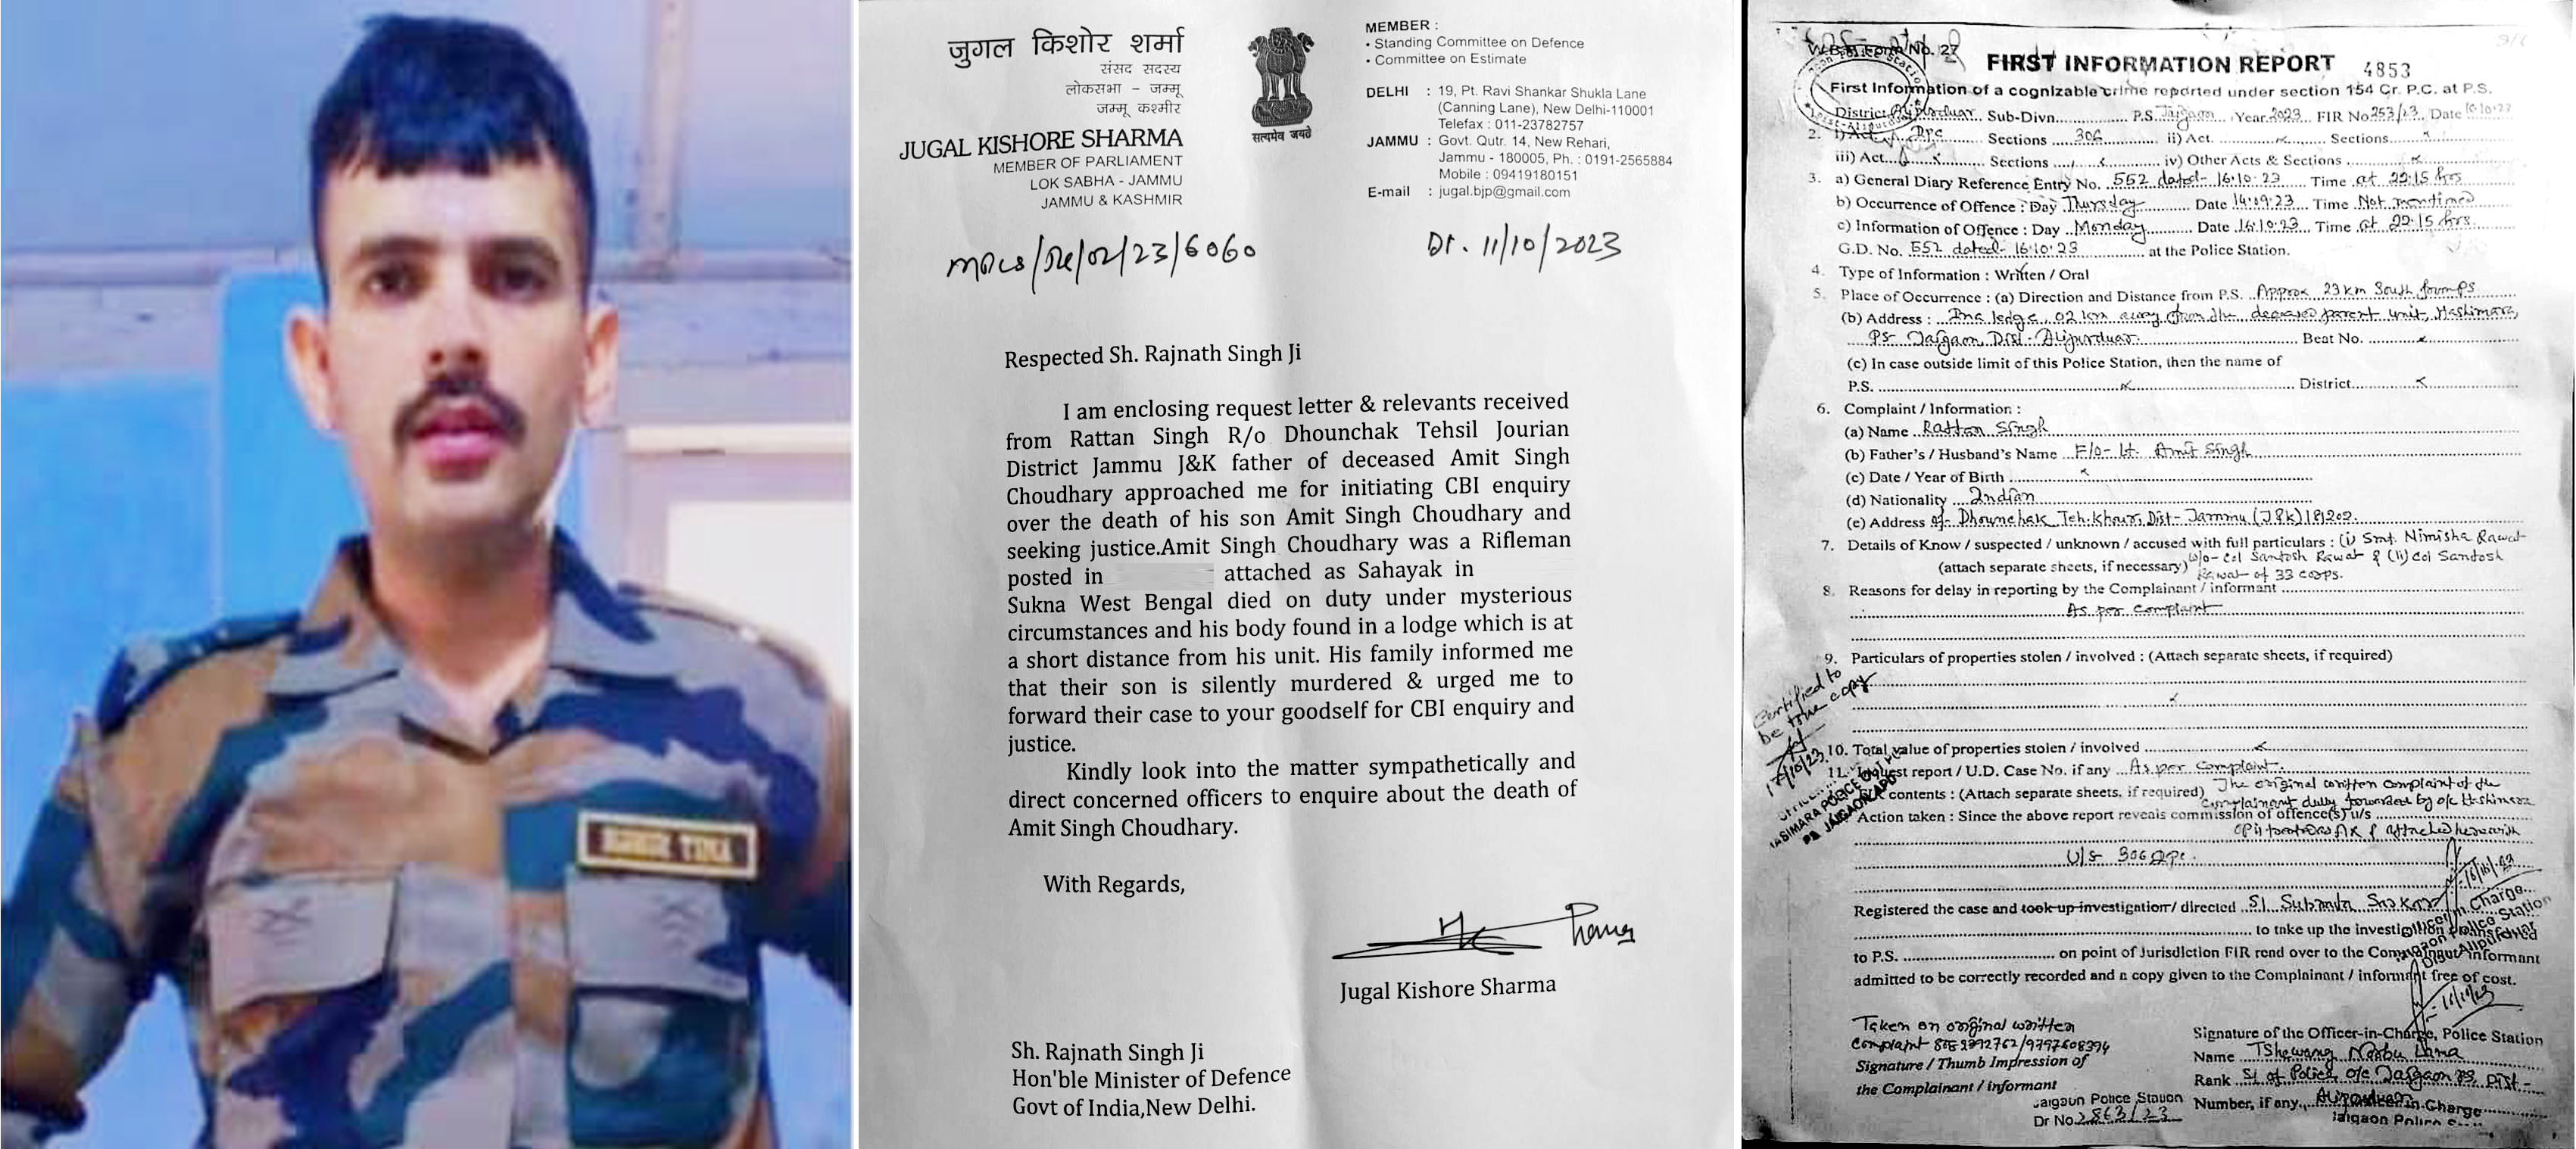 जुगल किशोर शर्मा
संसद सदस्य
लोकसभा - जम्मू
जम्मू कश्मीर
JUGAL KISHORE SHARMA
MEMBER OF PARLIAMENT
LOK SABHA - JAMMU
JAMMU & KASHMIR
सत्यमेव जयते
MEMBER :
• Standing Committee on Defence
• Committee on Estimate
DELHI : 19, Pt. Ravi Shankar Shukla Lane
(Canning Lane), New Delhi-110001
Telefax : 011-23782757
JAMMU : Govt. Qutr. 14, New Rehari,
Jammu - 180005, Ph. : 0191-2565884
Mobile : 09419180151
E-mail : jugal.bjp@gmail.com
/02/23/6060
Dt. 11/10/2023
Respected Sh. Rajnath Singh Ji
I am enclosing request letter & relevants received
from Rattan Singh R/o Dhounchak Tehsil Jourian
District Jammu J&K father of deceased Amit Singh
Choudhary approached me for initiating CBI enquiry
over the death of his son Amit Singh Choudhary and
seeking justice.Amit Singh Choudhary was a Rifleman
posted in attached as Sahayak in
Sukna West Bengal died on duty under mysterious
circumstances and his body found in a lodge which is at
a short distance from his unit. His family informed me
that their son is silently murdered & urged me to
forward their case to your goodself for CBI enquiry and
justice.
Kindly look into the matter sympathetically and
direct concerned officers to enquire about the death of
Amit Singh Choudhary.
With Regards,
Jugal Kishore Sharma
Sh. Rajnath Singh Ji
Hon'ble Minister of Defence
Govt of India,New Delhi.
Form No. 27
FIRST INFORMATION REPORT 4853
First Information of a cognizable crime reported under section 154 Cr. P.C. at P.S.
District Alipurduar Sub-Divn. P.S. Jaigaon Year 2023 FIR No 253/23 Date 16.10.23
2. i) Act Sections 306 ii) Act. x Sections x
iii) Act x Sections x iv) Other Acts & Sections x
3. a) General Diary Reference Entry No. 552 dated- 16.10.23 Time at 22:15 hrs
b) Occurrence of Offence : Day Thursday Date 14.09.23 Time Not mentioned
c) Information of Offence : Day Monday Date 16.10.23 Time at 22:15 hrs.
G.D. No. 552 dated- 16.10.23 at the Police Station.
4. Type of Information : Written / Oral
5. Place of Occurrence : (a) Direction and Distance from P.S. Approx 23 km South from PS
(b) Address : In a lodge, 02 km away from the deceased parent unit, Hashimara,
PS- Jaigaon, Dist- Alipurduar. Beat No. x
(c) In case outside limit of this Police Station, then the name of
P.S. x District x
6. Complaint / Information :
(a) Name Rattan Singh
(b) Father's / Husband's Name F/o- Lt. Amit Singh
(c) Date / Year of Birth x
(d) Nationality Indian
(e) Address of- Dhounchak, Teh. Khour, Dist- Jammu (J&K) 181202.
7. Details of Know / suspected / unknown / accused with full particulars : (i) Smt. Nimisha Rawat
(attach separate sheets, if necessary) w/o- Col Santosh Rawat & (ii) Col Santosh
Rawat of 33 corps.
8. Reasons for delay in reporting by the Complainant / informant
As per complaint
9. Particulars of properties stolen / involved : (Attach separate sheets, if required)
x
Certified to
be true copy
10. Total value of properties stolen / involved x
11. Inquest report / U.D. Case No. if any As per complaint.
contents : (Attach separate sheets, if required) The original written complaint of the
complainant dully forwarded by o/c Hashimara
Action taken : Since the above report reveals commission of offence(s) u/s
attached herewith
U/S- 306 IPC.
Registered the case and took up investigation/ directed SI
to take up the investigation
to P.S. on point of Jurisdiction FIR rend over to the Complainant/Informant
admitted to be correctly recorded and a copy given to the Complainant / informant free of cost.
Taken on original written
complaint
Signature / Thumb Impression of
the Complainant / informant
Signature of the Officer-in-Charge, Police Station
Name Tshewang Norbu Lama
Rank SI of Police, o/c Jaigaon PS, Dist-
Number, if any. Alipurduar
Jaigaon Police Station
Dr No 2863/23